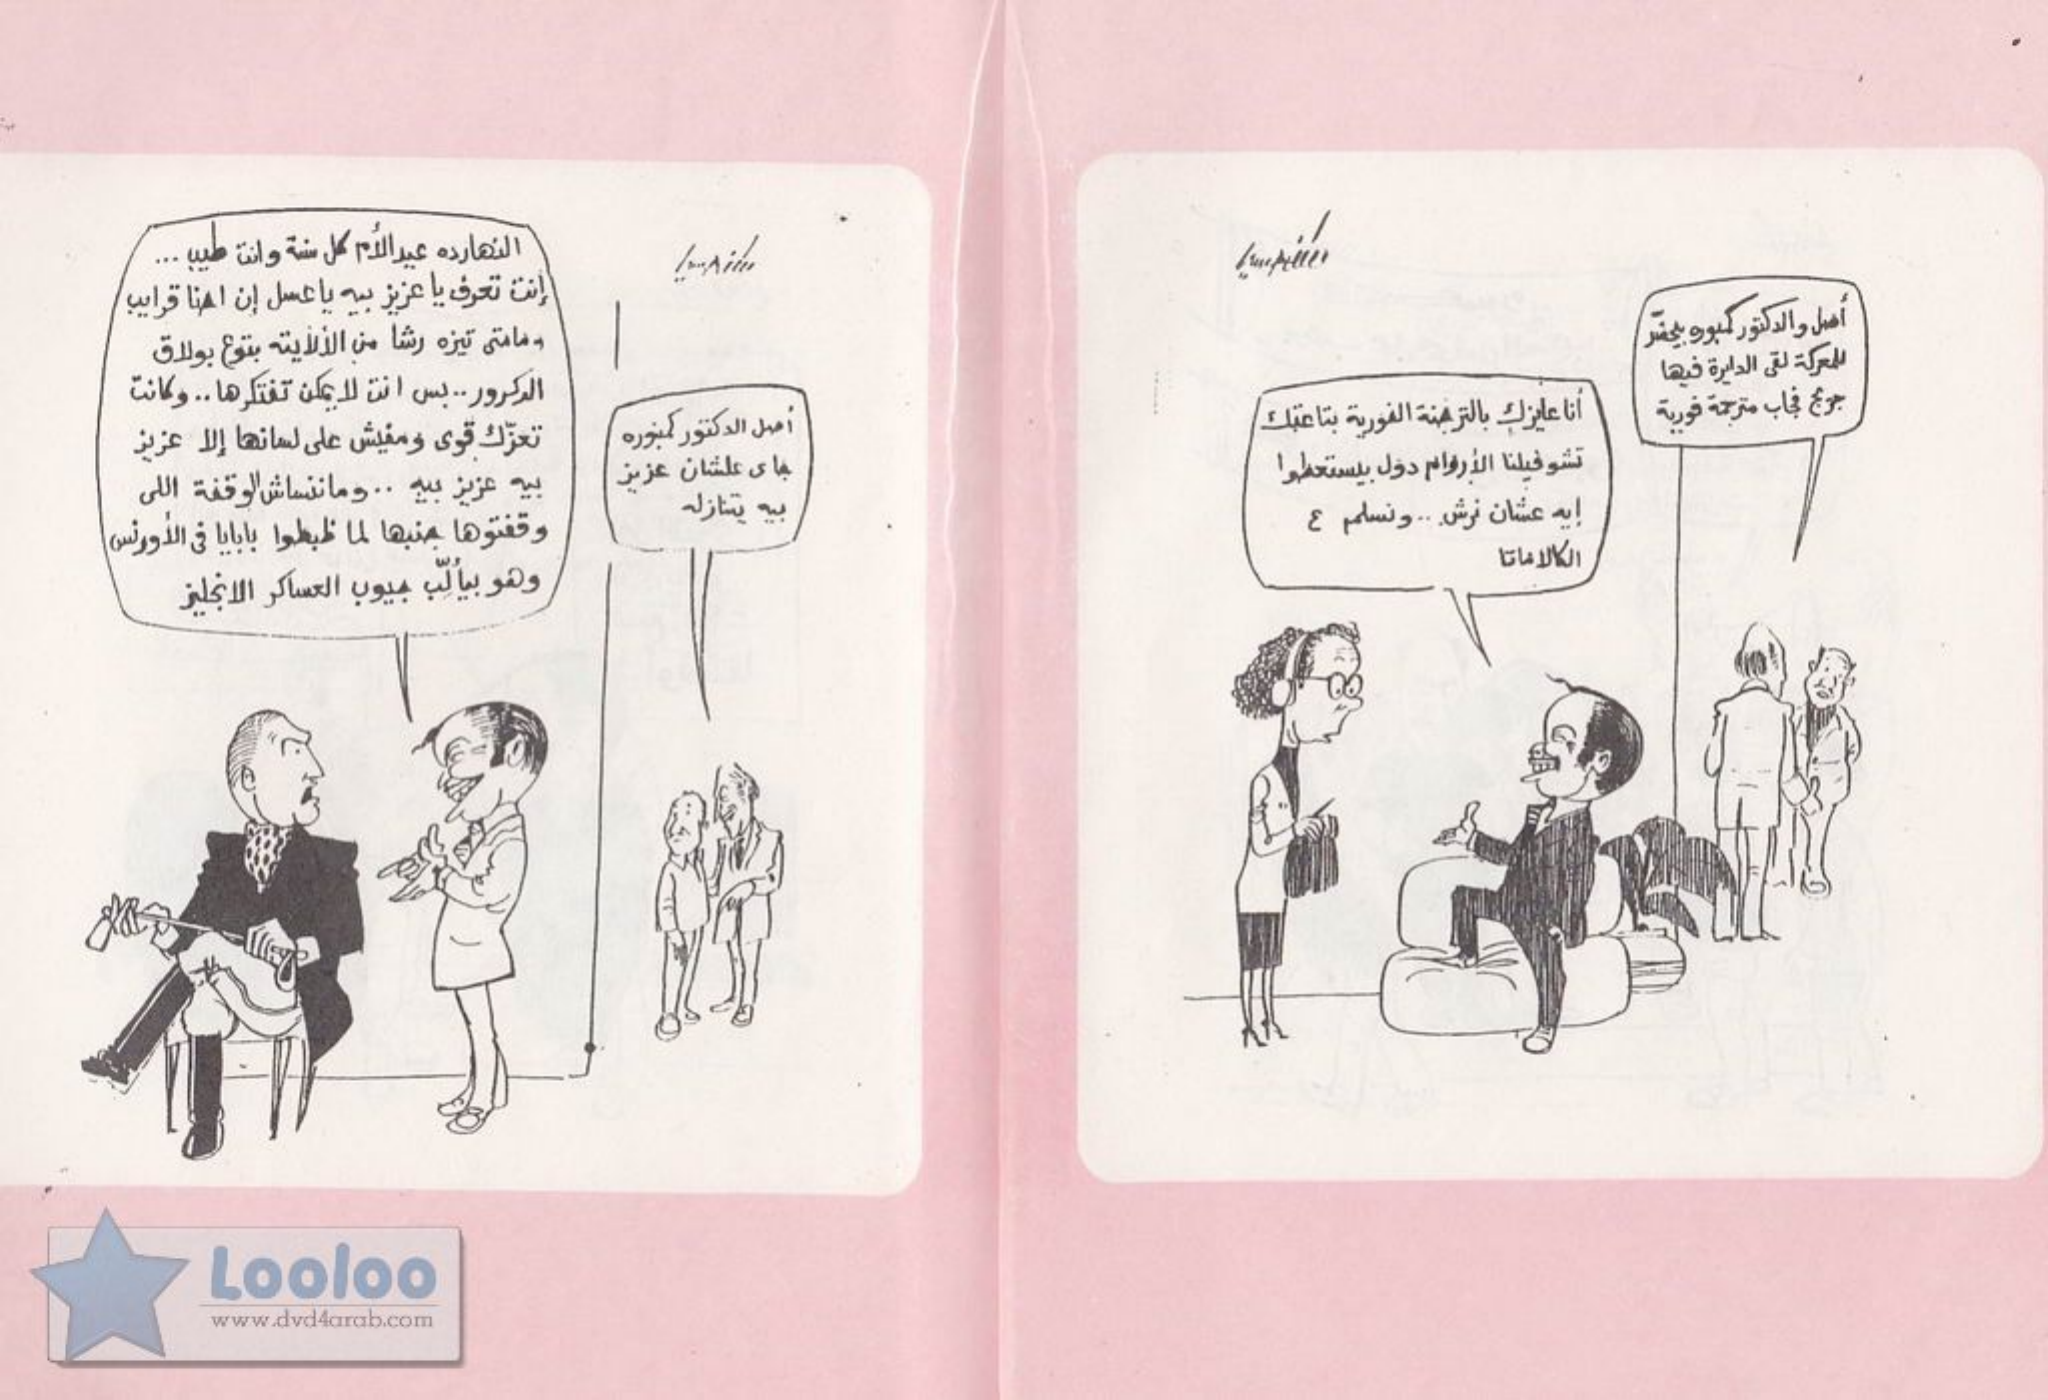 أصل والدكتور كمبوره بيحضّر
للمعركة لقى الدايرة فيها
جريج فجاب مترجمة فورية
أنا عايزك بالترجمة الفورية بتاعتك
تشوفيلنا الأروام دول بيستعطوا
إيه عشان نرش .. ونسلم ع
الكالاماتا
النهارده عيد الأم كل سنة وانت طيب ...
إنت تعرف يا عزيز بيه يا عسل إن احنا قرايب
ومامتى تيزه رشا من الألايته بتوع بولاق
الدكرور .. بس انت لا يمكن تفتكرها .. وكانت
تعزّك قوى ومفيش على لسانها إلا عزيز
بيه عزيز بيه .. وماننساش الوقفة اللى
وقفتوها جنبها لما ظبطوا بابايا فى الأورنس
وهو بيألّب جيوب العساكر الانجليز
أصل الدكتور كمبوره
جاى علشان عزيز
بيه يتنازله
Looloo
www.dvd4arab.com